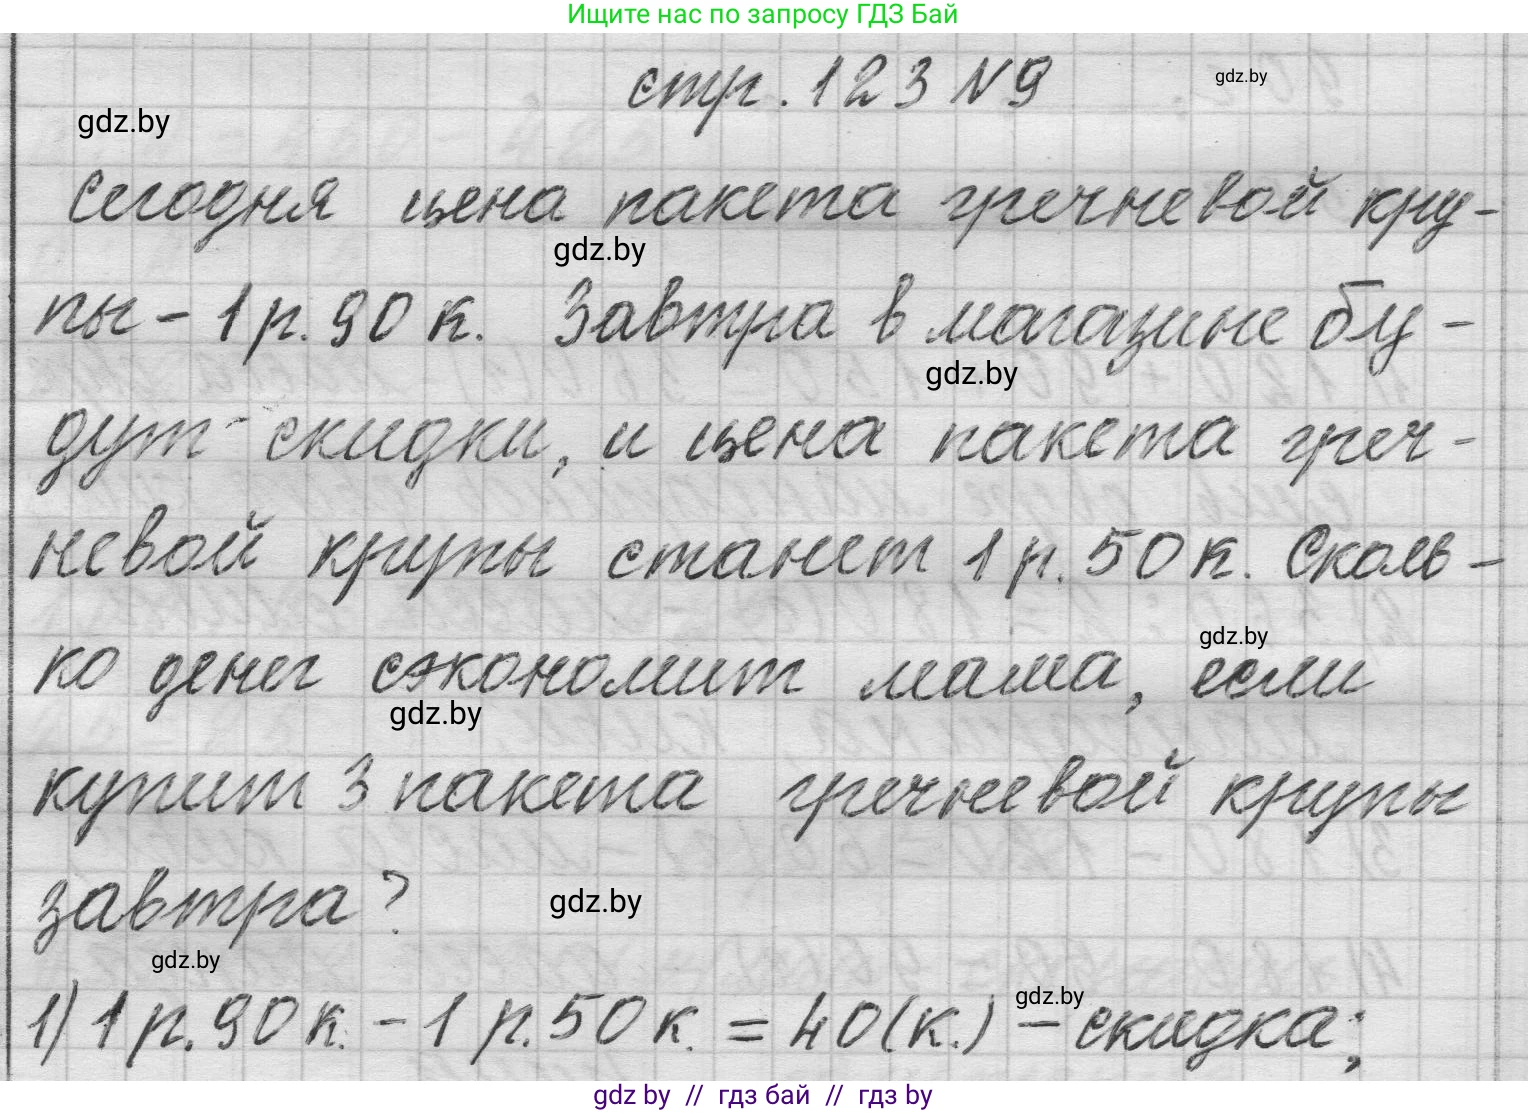 Ищите нас по запросу ГДЗ Бай
стр. 123 №9
gdz.by
gdz.by
Сегодня цена пакета гречневой кру-
gdz.by
пы - 1 р. 90 к. Завтра в магазине бу-
gdz.by
дут скидки, и цена пакета греч-
невой крупы станет 1 р. 50 к. Сколь-
gdz.by
ко денег сэкономит мама, если
gdz.by
купит 3 пакета гречневой крупы
завтра?
gdz.by
gdz.by
1) 1 р. 90 к. - 1 р. 50 к. = 40 (к.) - скидка;
gdz.by
gdz by // гдз бай // гдз by